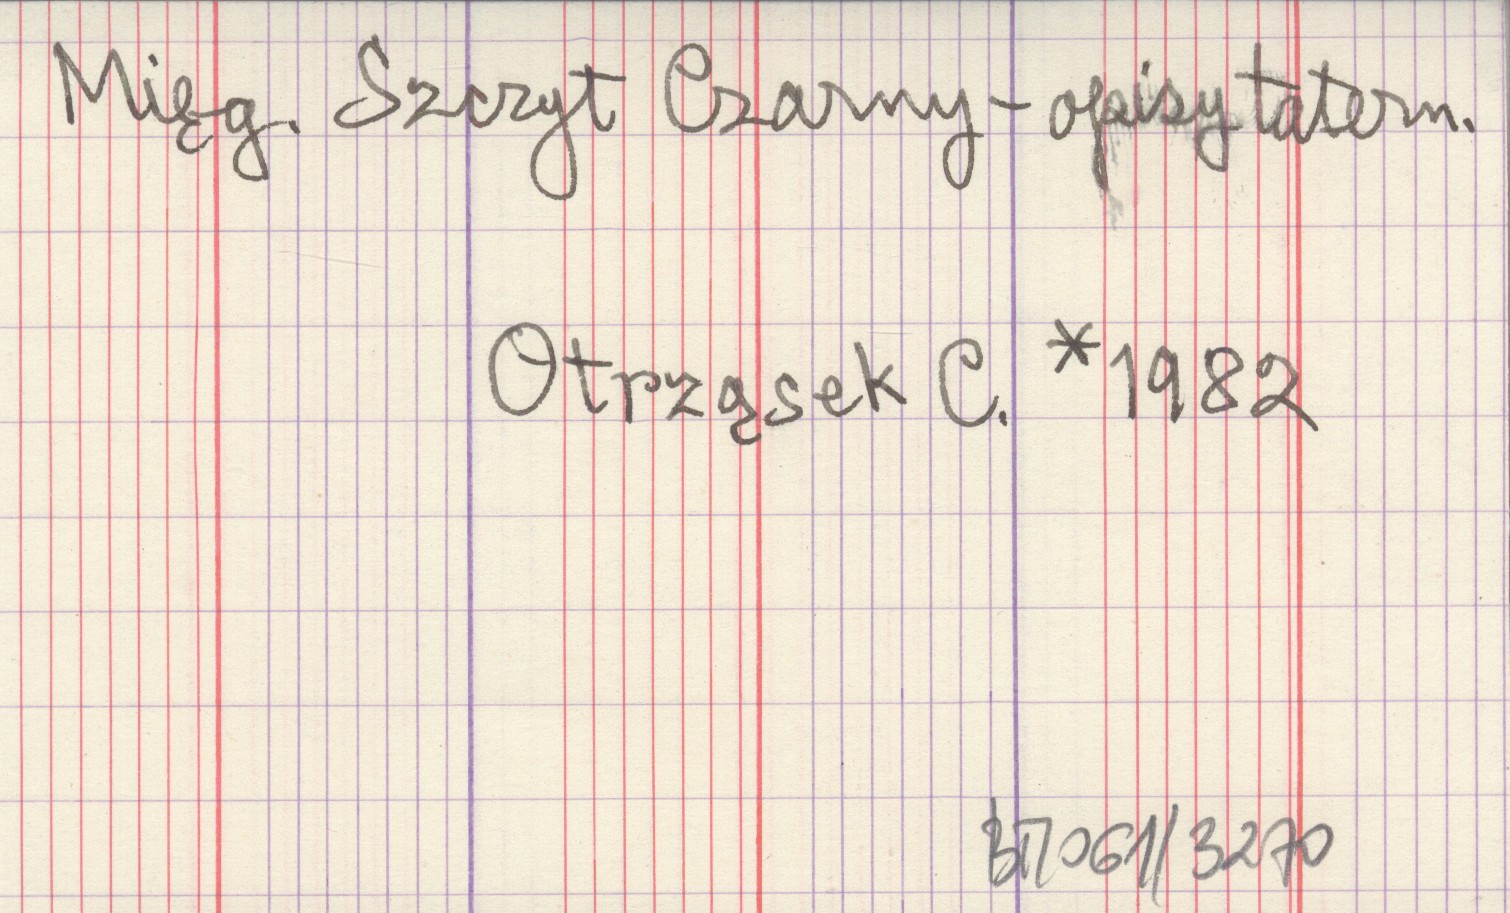 Mięg. Szczyt Czarny - opisy tatern.
Otrząsek C. *1982